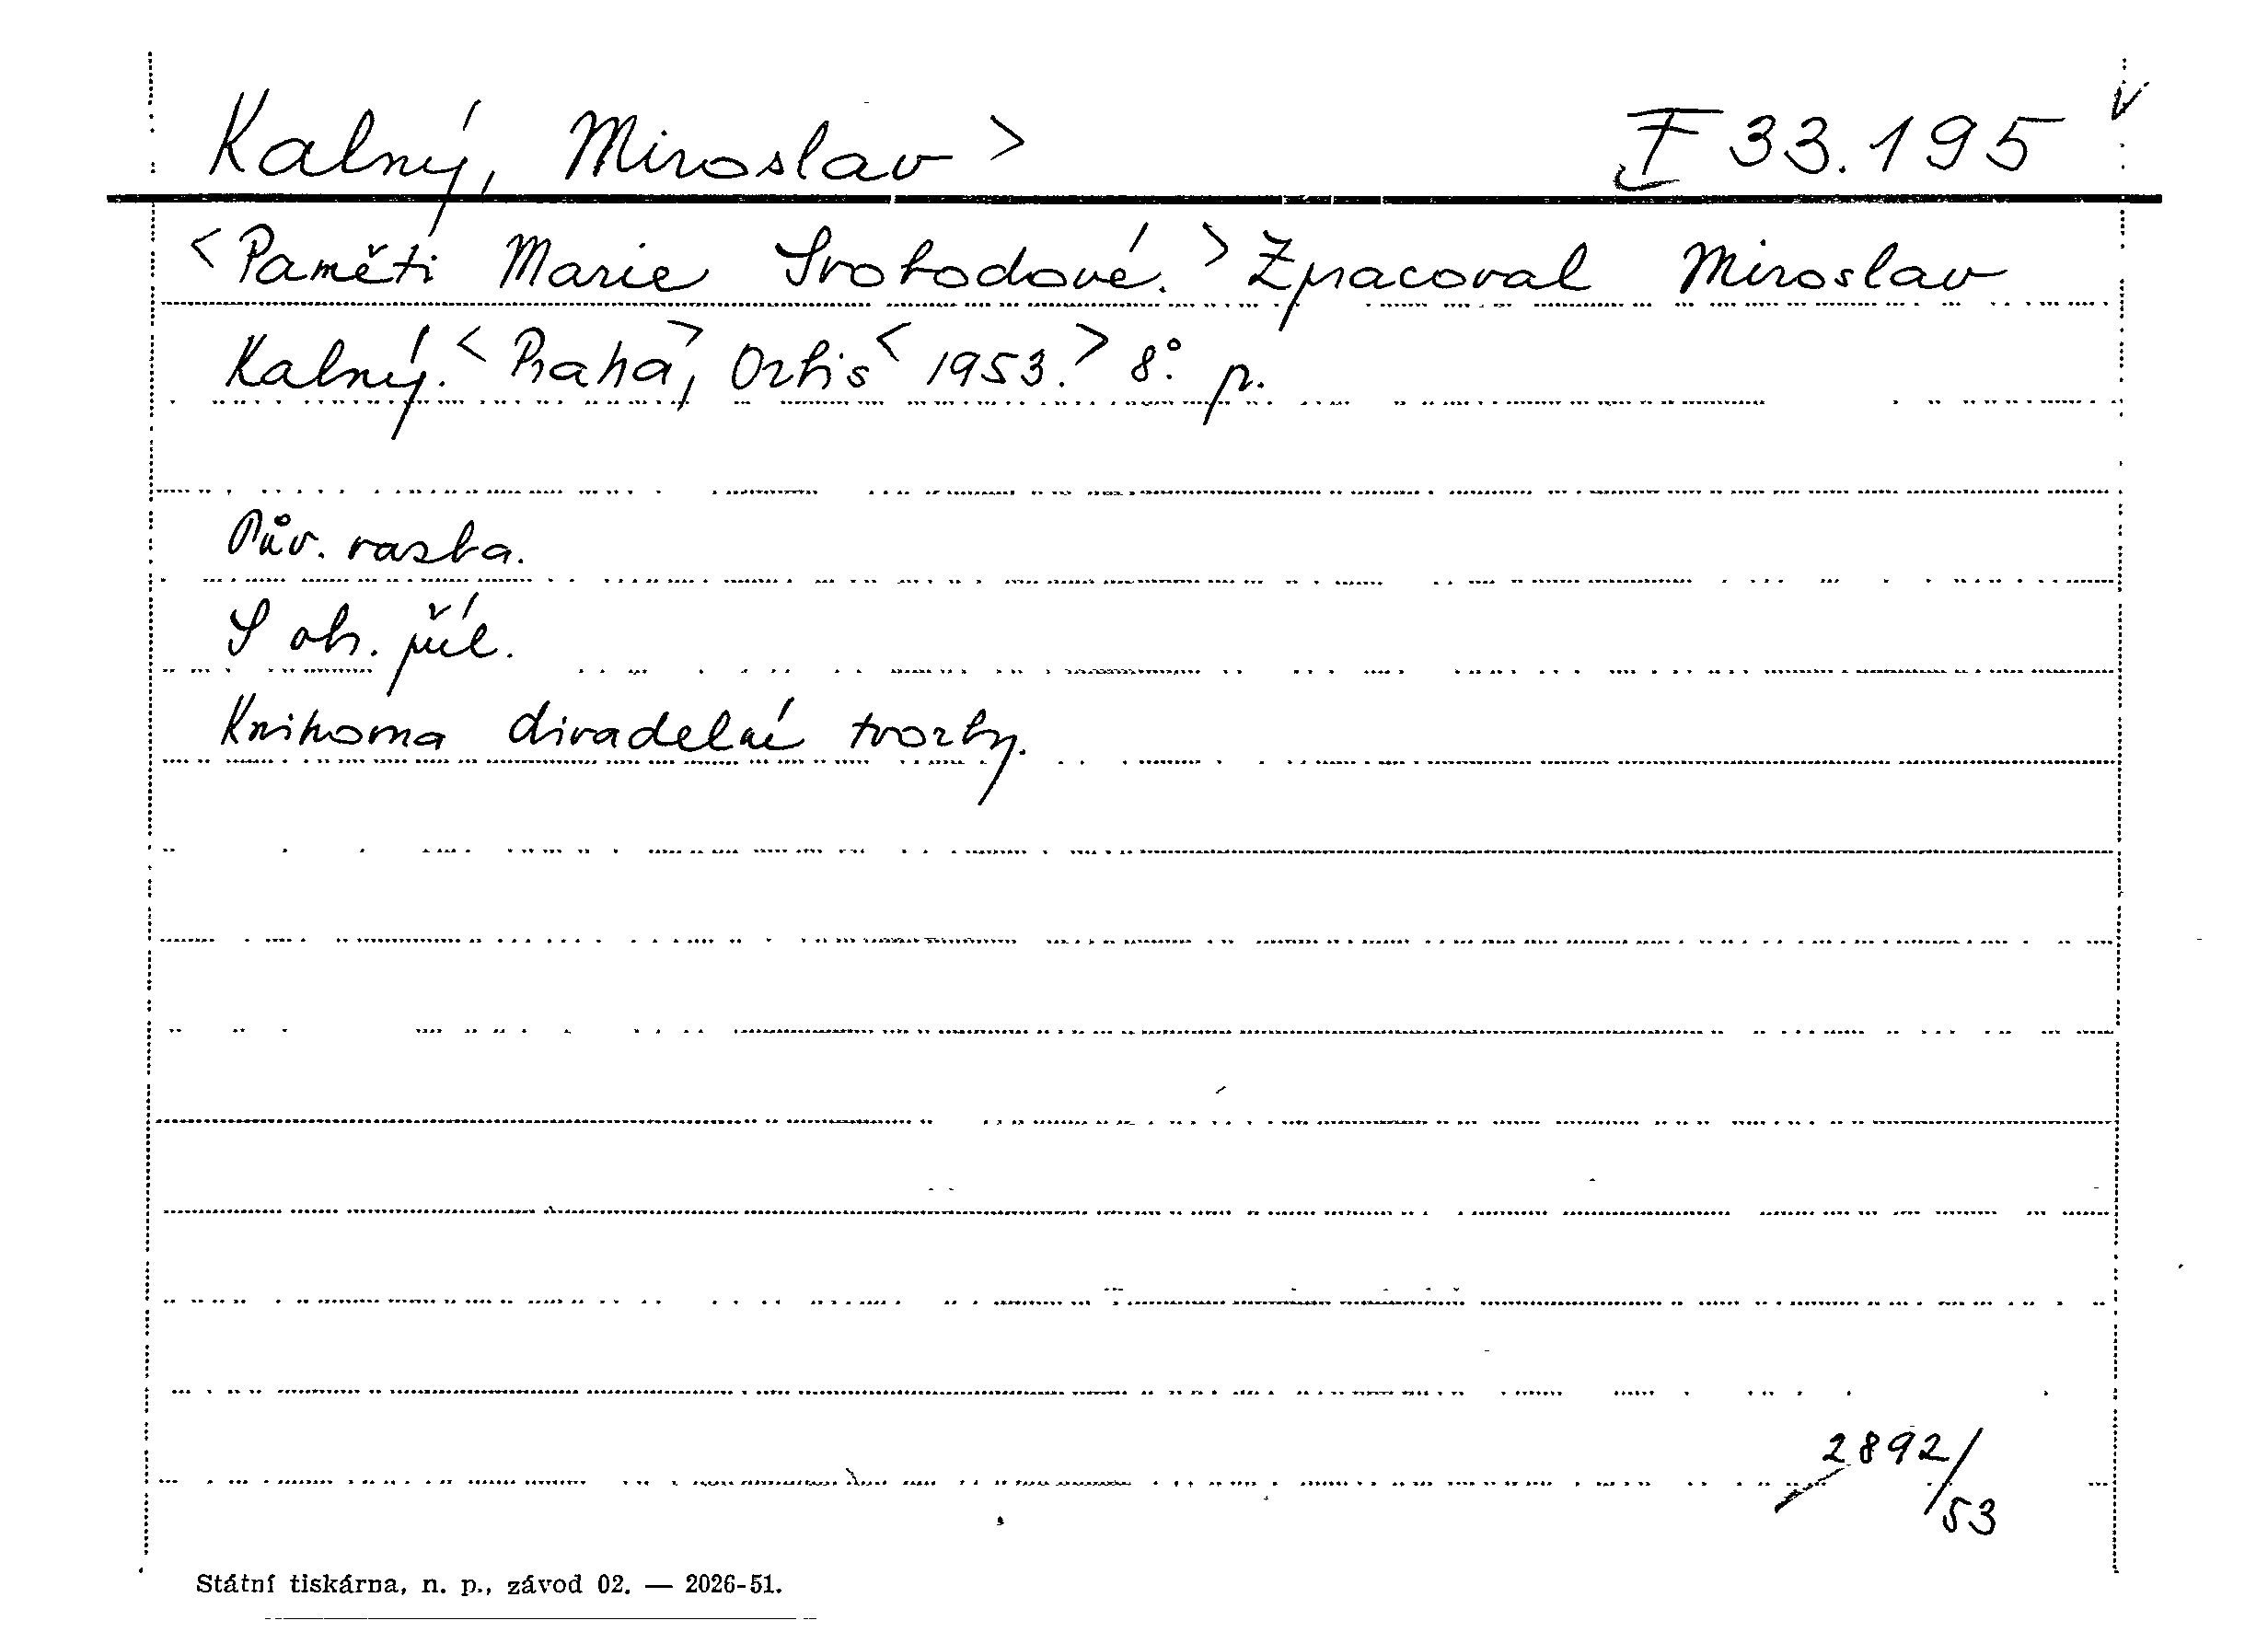 Kalný, Miroslav > F 33.195 v
<Paměti Marie Svobodové.> Zpracoval Miroslav
Kalný. <Praha>, Orbis <1953.> 8°. p.
Pův. vazba.
S ob. příl.
Knihovna divadelní tvorby.
2892/53
Státní tiskárna, n. p., závod 02. — 2026-51.